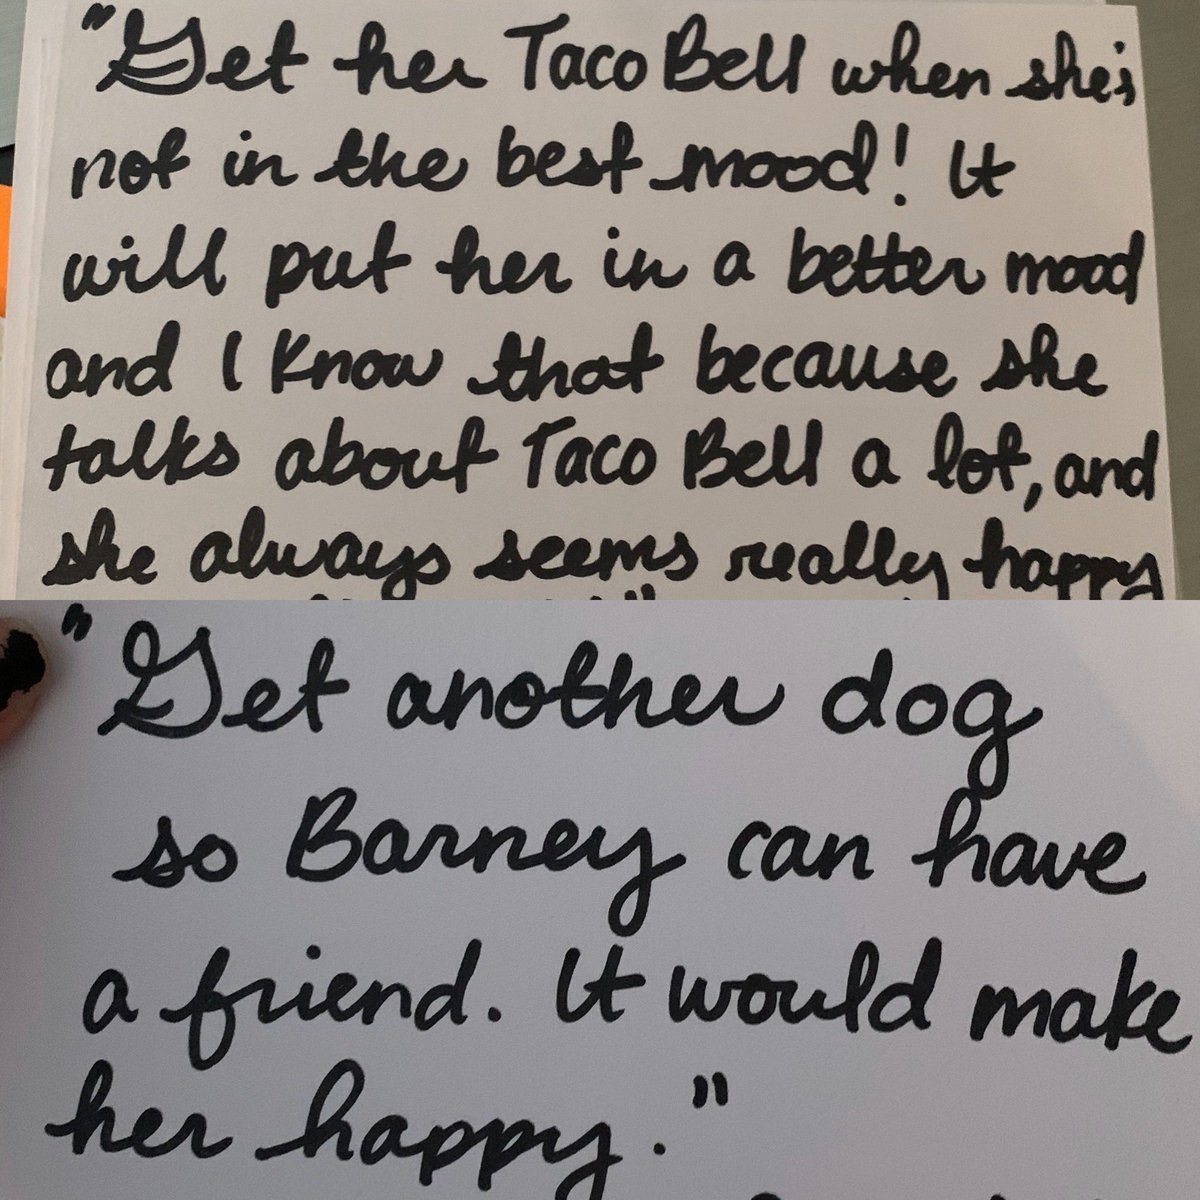 "Get her Taco Bell when she's
not in the best mood! It
will put her in a better mood
and I know that because she
talks about Taco Bell a lot, and
she always seems really happy
"Get another dog
so Barney can have
a friend. It would make
her happy."